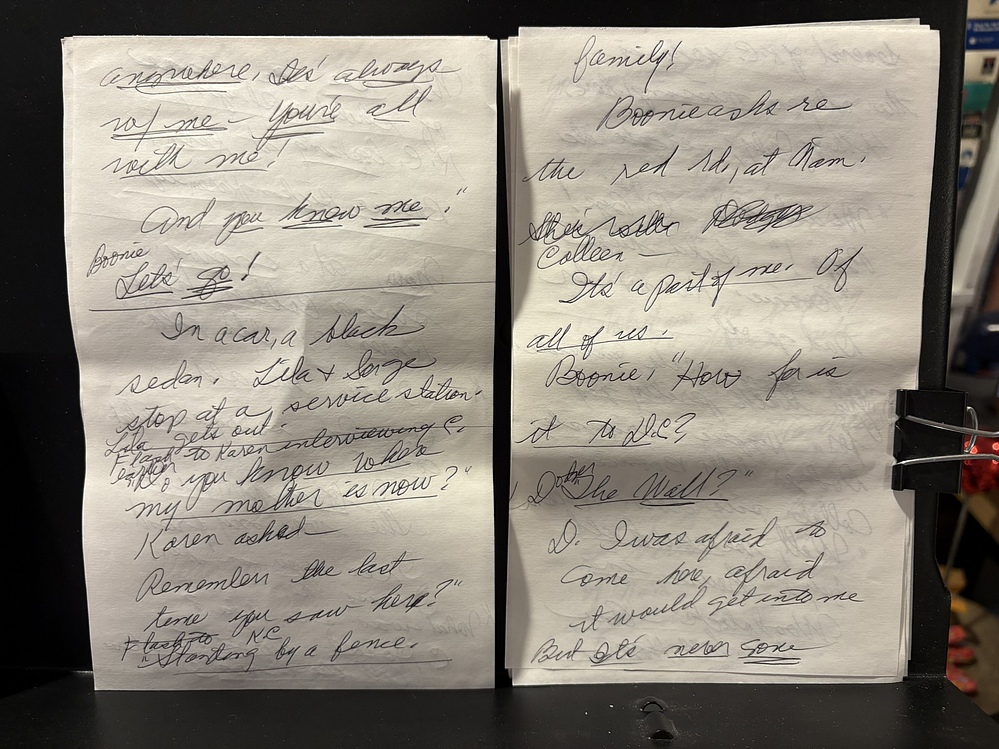 anymore. Its' always
w/ me - You're all
with me!
And you know me."
Boonie
Lets' go!
In a car, a black
sedan. Lila + Sorge
stop at a service station.
Lila gets out
Flash to Karen interviewing C.
earlier
"Do you know where
my mother is now?"
Karen asked
Remember the last
time you saw her?"
Flash to N.C
Standing by a fence.
family!
Boonie asks re
the red rd., at
Colleen -
Its' a part of me. Of
all of us.
Boonie, "How far is
it to D.C?
Dodger
"The Wall?"
D. I was afraid to
come here, afraid
it would get into me
But its' never gone